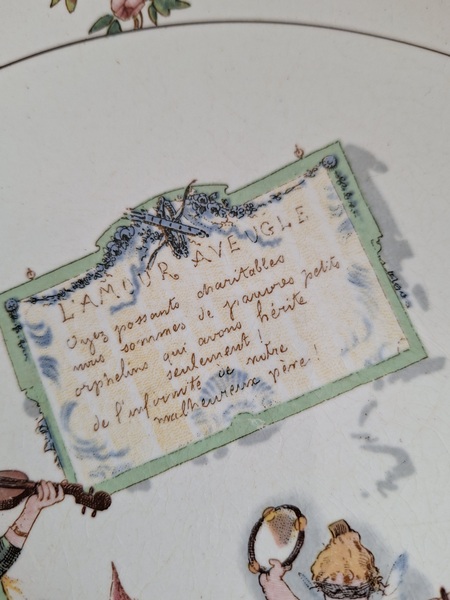 L'AMOUR AVEUGLE
Oyez passants charitables
nous sommes de pauvres petits
orphelins qui avons hérité
seulement !
de l'infirmité de notre
malheureux père !